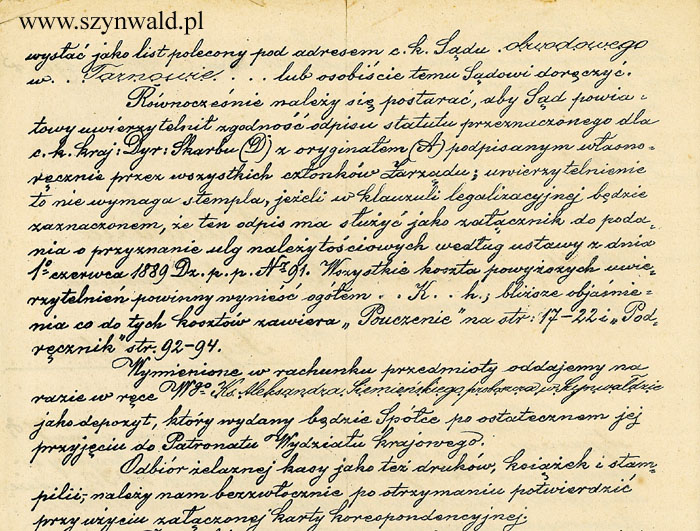 www.szynwald.pl
wysłać jako list polecony pod adresem c. k. Sądu obwodowego
w . . Tarnowie . . . lub osobiście temu Sądowi doręczyć.
Równocześnie należy się postarać, aby Sąd powia-
towy uwierzytelnił zgodność odpisu statutu przeznaczonego dla
c. k. kraj: Dyr: Skarbu (D) z oryginałem (A) podpisanym własno-
ręcznie przez wszystkich członków Zarządu; uwierzytelnienie
to nie wymaga stempla, jeżeli w klauzuli legalizacyjnej będzie
zaznaczonem, że ten odpis ma służyć jako załącznik do poda-
nia o przyznanie ulg należytościowych według ustawy z dnia
1º czerwca 1889 Dz. p. p. Nº 91. Wszystkie koszta powyższych uwie-
rzytelnień powinny wynieść ogółem . . K . . h.; bliższe objaśnie-
nia co do tych kosztów zawiera „Pouczenie" na str: 17-22 i „Pod-
ręcznik" str. 92-94.
Wymienione w rachunku przedmioty oddajemy na
razie w ręce Wgo Ks. Aleksandra Siemieńskiego, proboszcza w Szynwałdzie
jako depozyt, który wydany będzie Spółce po ostatecznem jej
przyjęciu do Patronatu Wydziału krajowego.
Odbiór żelaznej kasy jako też druków, książek i stam-
pilii, należy nam bezzwłocznie po otrzymaniu potwierdzić
przy użyciu załączonej karty korespondencyjnej